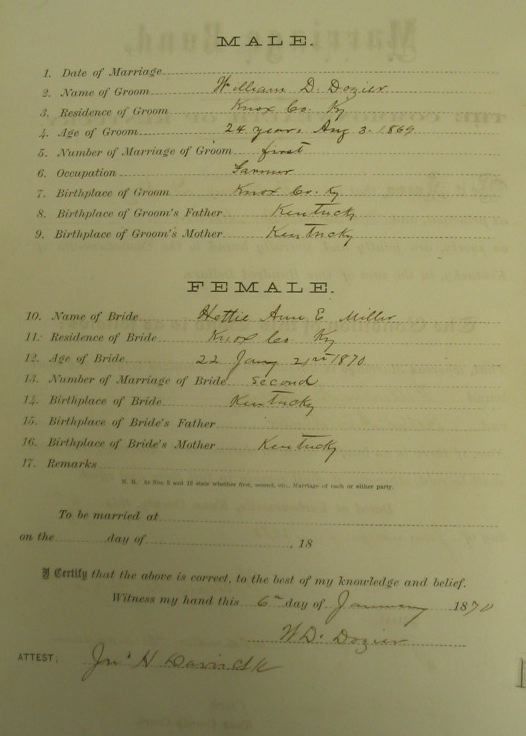 MALE.
1. Date of Marriage
2. Name of Groom William D. Dozier
3. Residence of Groom Knox Co. Ky
4. Age of Groom 24 years Aug 3. 1869
5. Number of Marriage of Groom first
6. Occupation Farmer
7. Birthplace of Groom Knox Co. Ky
8. Birthplace of Groom's Father Kentucky
9. Birthplace of Groom's Mother Kentucky
FEMALE.
10. Name of Bride Hettie Ann E Miller
11. Residence of Bride Knox Co Ky
12. Age of Bride 22 Jany 21st 1870
13. Number of Marriage of Bride second
14. Birthplace of Bride Kentucky
15. Birthplace of Bride's Father
16. Birthplace of Bride's Mother Kentucky
17. Remarks
N. B. At Nos 5 and 13 state whether first, second, etc., Marriage of each or either party.
To be married at
on the day of , 18
I Certify that the above is correct, to the best of my knowledge and belief.
Witness my hand this 6th day of January 1870
W. D. Dozier
ATTEST, Jno H Davis Clk